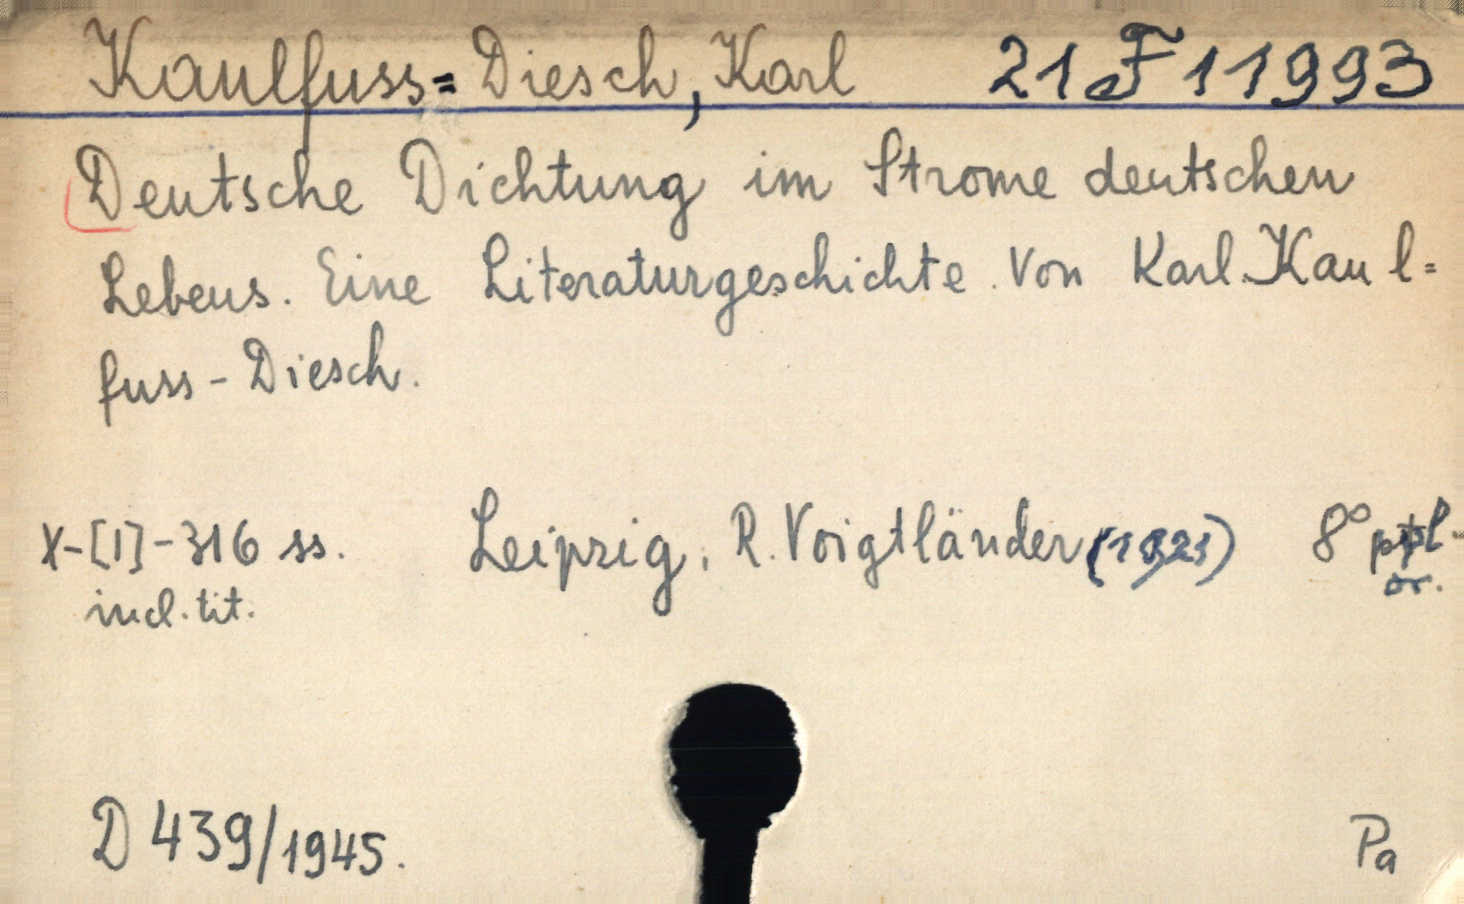 Kaulfuss=Diesch, Karl 21 F 11993
Deutsche Dichtung im Strome deutschen
Lebens. Eine Literaturgeschichte. Von Karl Kaul=
fuss-Diesch.
X-[1]-316 ss. Leipzig, R. Voigtländer (1921) 8°
incl. tit. or.
D 439/1945.
Pa